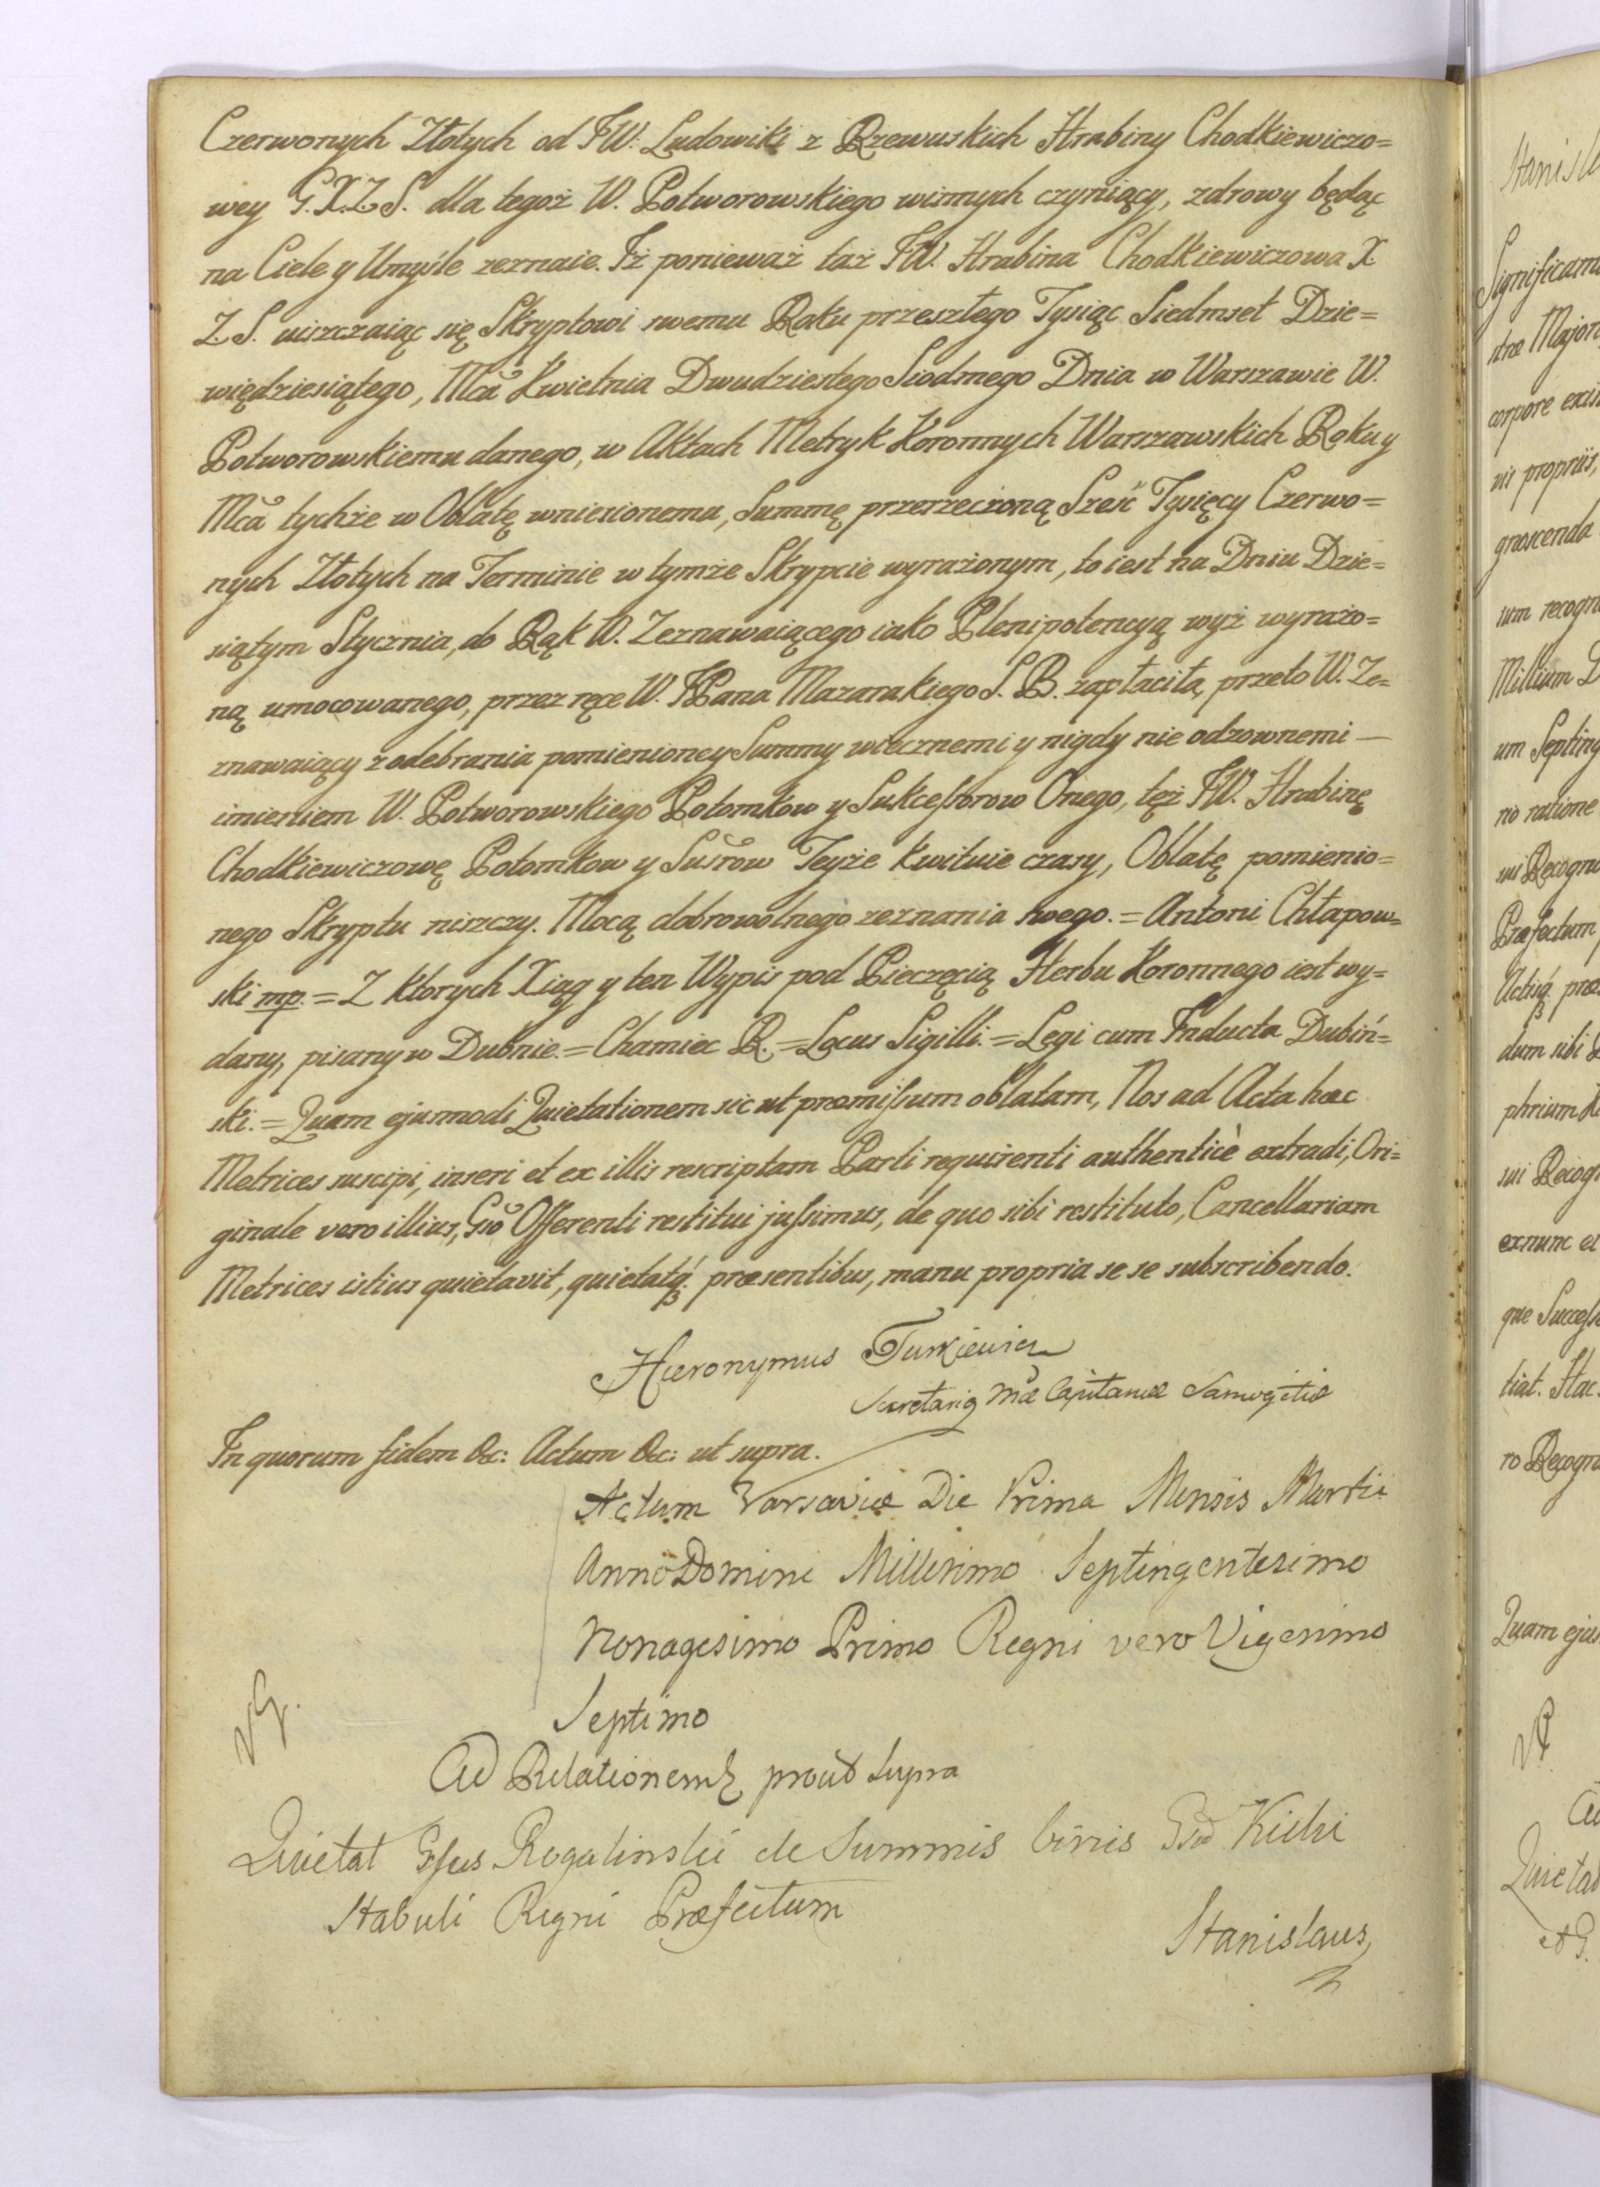 Czerwonych Złotych od JW. Ludowiki z Rzewuskich Hrabiny Chodkiewiczo=
wey G. X. Z. S. dla tegoż W. Potworowskiego winnych czyniący, zdrowy będąc
na Ciele y Umyśle zeznaie. Iż ponieważ taż JW. Hrabina Chodkiewiczowa X
Z. S. uiszczaiąc się Skryptowi swemu Roku przeszłego Tysiąc Siedmset Dzie=
więdziesiątego, Mca Kwietnia Dwudziestego Siodmego Dnia w Warszawie W.
Potworowskiemu danego, w Aktach Metryk Koronnych Warszawskich Roku y
Mca tychże w Oblatę wniesionemu, Summę przerzeczoną Sześć Tysięcy Czerwo=
nych Złotych na Terminie w tymże Skrypcie wyrażonym, to iest na Dniu Dzie=
siątym Stycznia, do Rąk W. Zeznawaiącego iako Plenipotencyą wyż wyrażo=
ną umocowanego, przez ręce W. JPana Mazarakiego S. B. zapłaciła, przeto W. Ze=
znawaiący z odebrania pomienioney Summy wiecznemi y nigdy nie odzownemi —
imieniem W. Potworowskiego Potomkow y Sukcessorow Onego, też JW. Hrabinę
Chodkiewiczowę Potomkow y Suśrow Teyże kwituie czasy, Oblatę pomienio=
nego Skryptu niszczy. Mocą dobrowolnego zeznania swego. = Antoni Chłapow=
ski mp. = Z ktorych Xiąg y ten Wypis pod Pieczęcią Herbu Koronnego iest wy=
dany, pisany w Dubnie. = Chamiec R. = Locus Sigilli. = Legi cum Inducta Dubiń=
ski. = Quam ejusmodi Quietationem sic ut præmissum oblatam, Nos ad Acta hæc
Metrices suscipi, inseri et ex illis rescriptam Parti requirenti authenticè extradi, Ori=
ginale vero illius, Gso Offerenti restitui jussimus, de quo sibi restituto, Cancellariam
Metrices istius quietavit, quietatq. præsentibus, manu propria se se subscribendo.
Hieronymus Turkiewicz
Secretariq Mæ Capitaneæ Samogitiæ
In quorum fidem &c: Actum &c: ut supra.
Actum Varsaviæ Die Prima Mensis Martii
Anno Domini Millesimo Septingentesimo
Nonagesimo Primo Regni vero Vigesimo
Septimo
Ad Relationem prout supra
Quietat Gsus Rogalinski de Summis binis Gso Kicki
Stabuli Regni Præfectum
Stanislaus